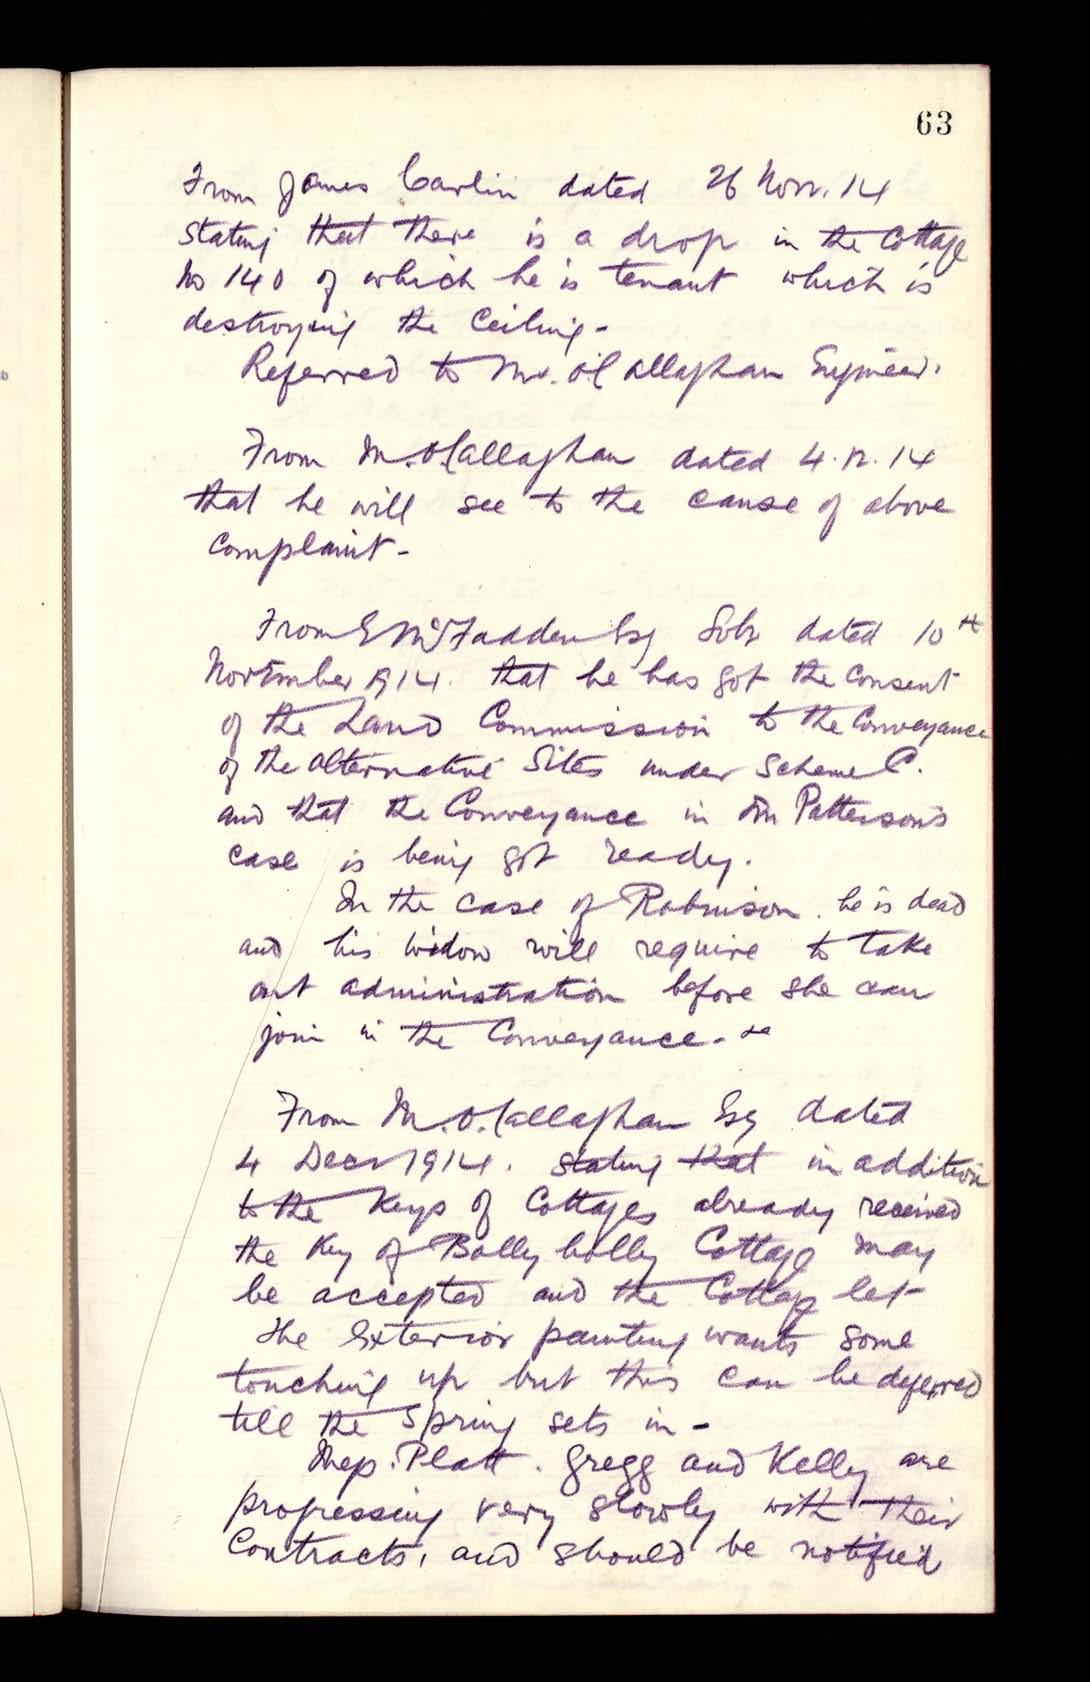 63
From James Carlin dated 26 Novr. 14
stating that there is a drop in the Cottage
No 140 of which he is tenant which is
destroying the Ceiling -
Referred to Mr. O'Callaghan Engineer.
From M. O'Callaghan dated 4.12.14
that he will see to the cause of above
Complaint -
From E McFadden Esq Solr dated 10th
November 1914. that he has got the consent
of the Land Commission to the Conveyance
of the alternative Sites under Scheme C.
and that the Conveyance in Patterson's
case is being got ready.
In the case of Robinson. he is dead
and his widow will require to take
out administration before she can
join in the Conveyance. -
From M. O'Callaghan Esq dated
4 Decr 1914. stating that in addition
to the Keys of Cottages already received
the Key of Ballyholly Cottage may
be accepted and the Cottage let -
The Exterior painting wants some
touching up but this can be deferred
till the Spring sets in -
Messrs. Platt. Gregg and Kelly are
progressing very slowly with their
Contracts, and should be notified